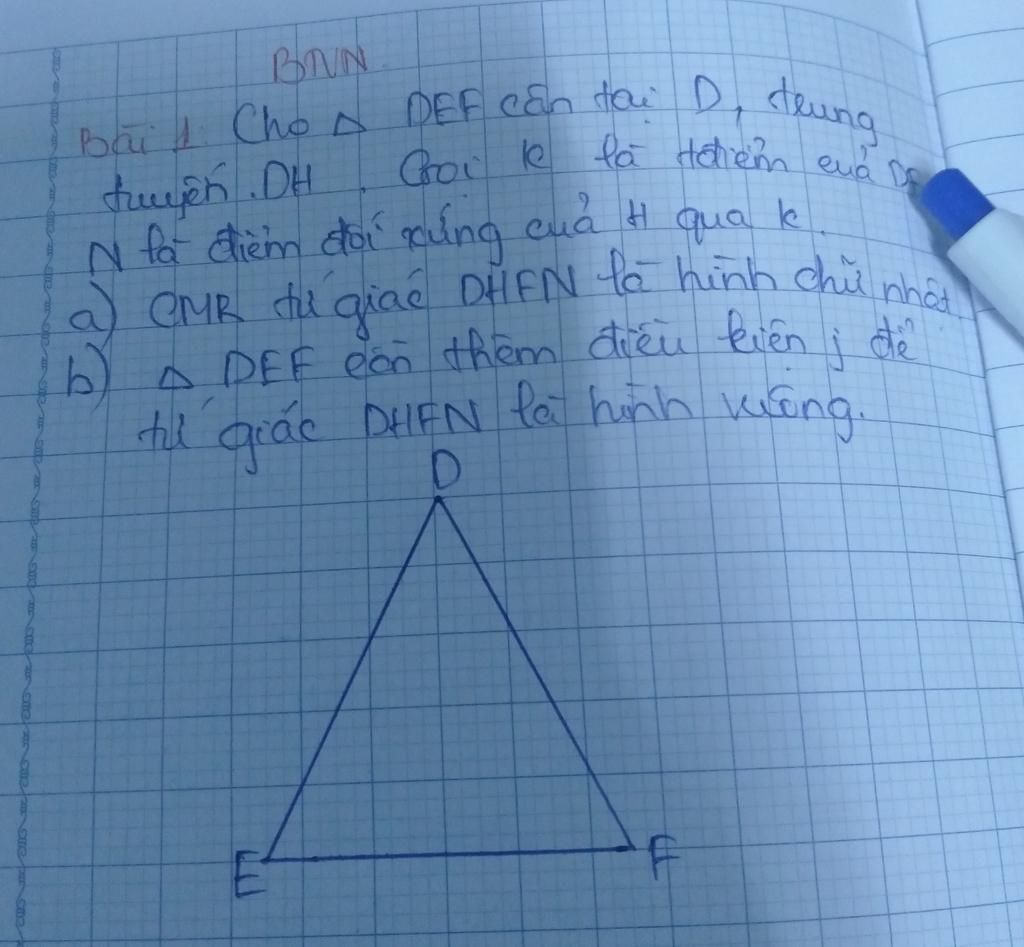 BNN
Bài 1. Cho Δ DEF cân tại D, trung
tuyến DH. Gọi K là tđiểm của DF
N là điểm đối xứng của H qua K.
a) CMR tứ giác DHFN là hình chữ nhật
b) Δ DEF cần thêm điều kiện j để
tứ giác DHFN là hình vuông.
D
E F